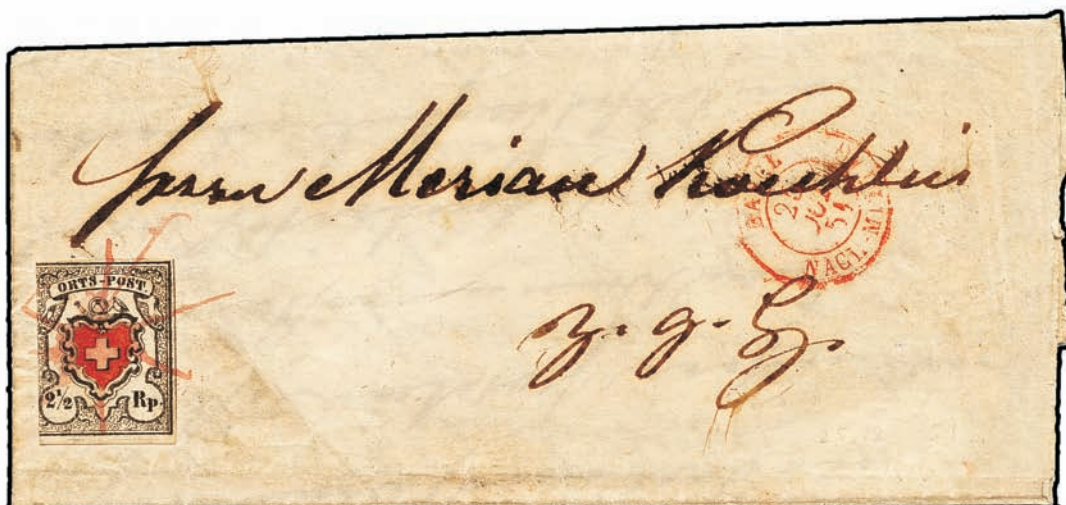 Herrn Merian Koechlin
BASEL
JUL
51
NACHMIT
z. g. H.
ORTS-POST.
2 1/2 Rp.